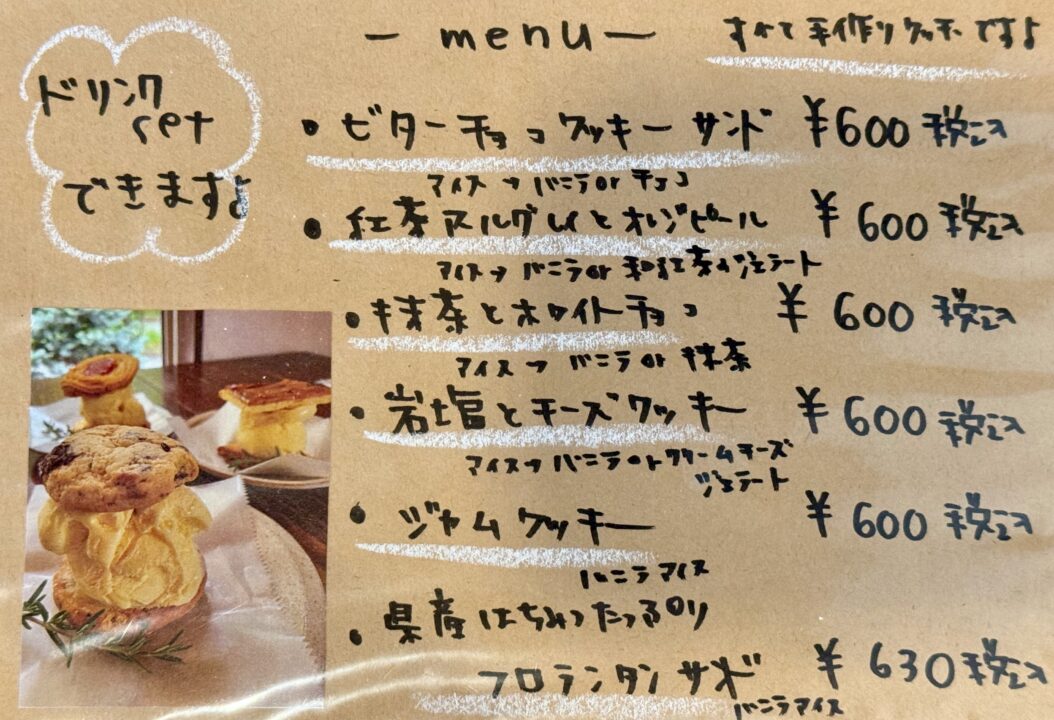 ー menu ー
すべて手作りクッキーですよ
ドリンク
set
できますよ
・ビターチョコクッキーサンド ¥600税込
アイス→バニラorチョコ
・紅茶アールグレイとオレンジピール ¥600税込
アイス→バニラor和紅茶のジェラート
・抹茶とホワイトチョコ ¥600税込
アイス→バニラor抹茶
・岩塩とチーズクッキー ¥600税込
アイス→バニラorクリームチーズ
ジェラート
・ジャムクッキー ¥600税込
バニラアイス
・県産はちみつたっぷり
フロランタンサンド ¥630税込
バニラアイス